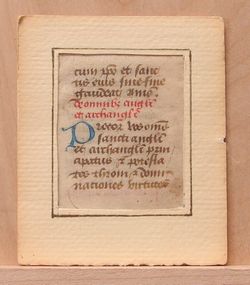 cum xpo et sanc
tis euis sine fine
gaudeat amē.
de omnibꝫ angl̄
et archangl̄
Precor vos om̄s
sancti angl̄i
et archangl̄i prin
cipatus ⁊ potesta
tes throni ⁊ domi
nationes virtutes